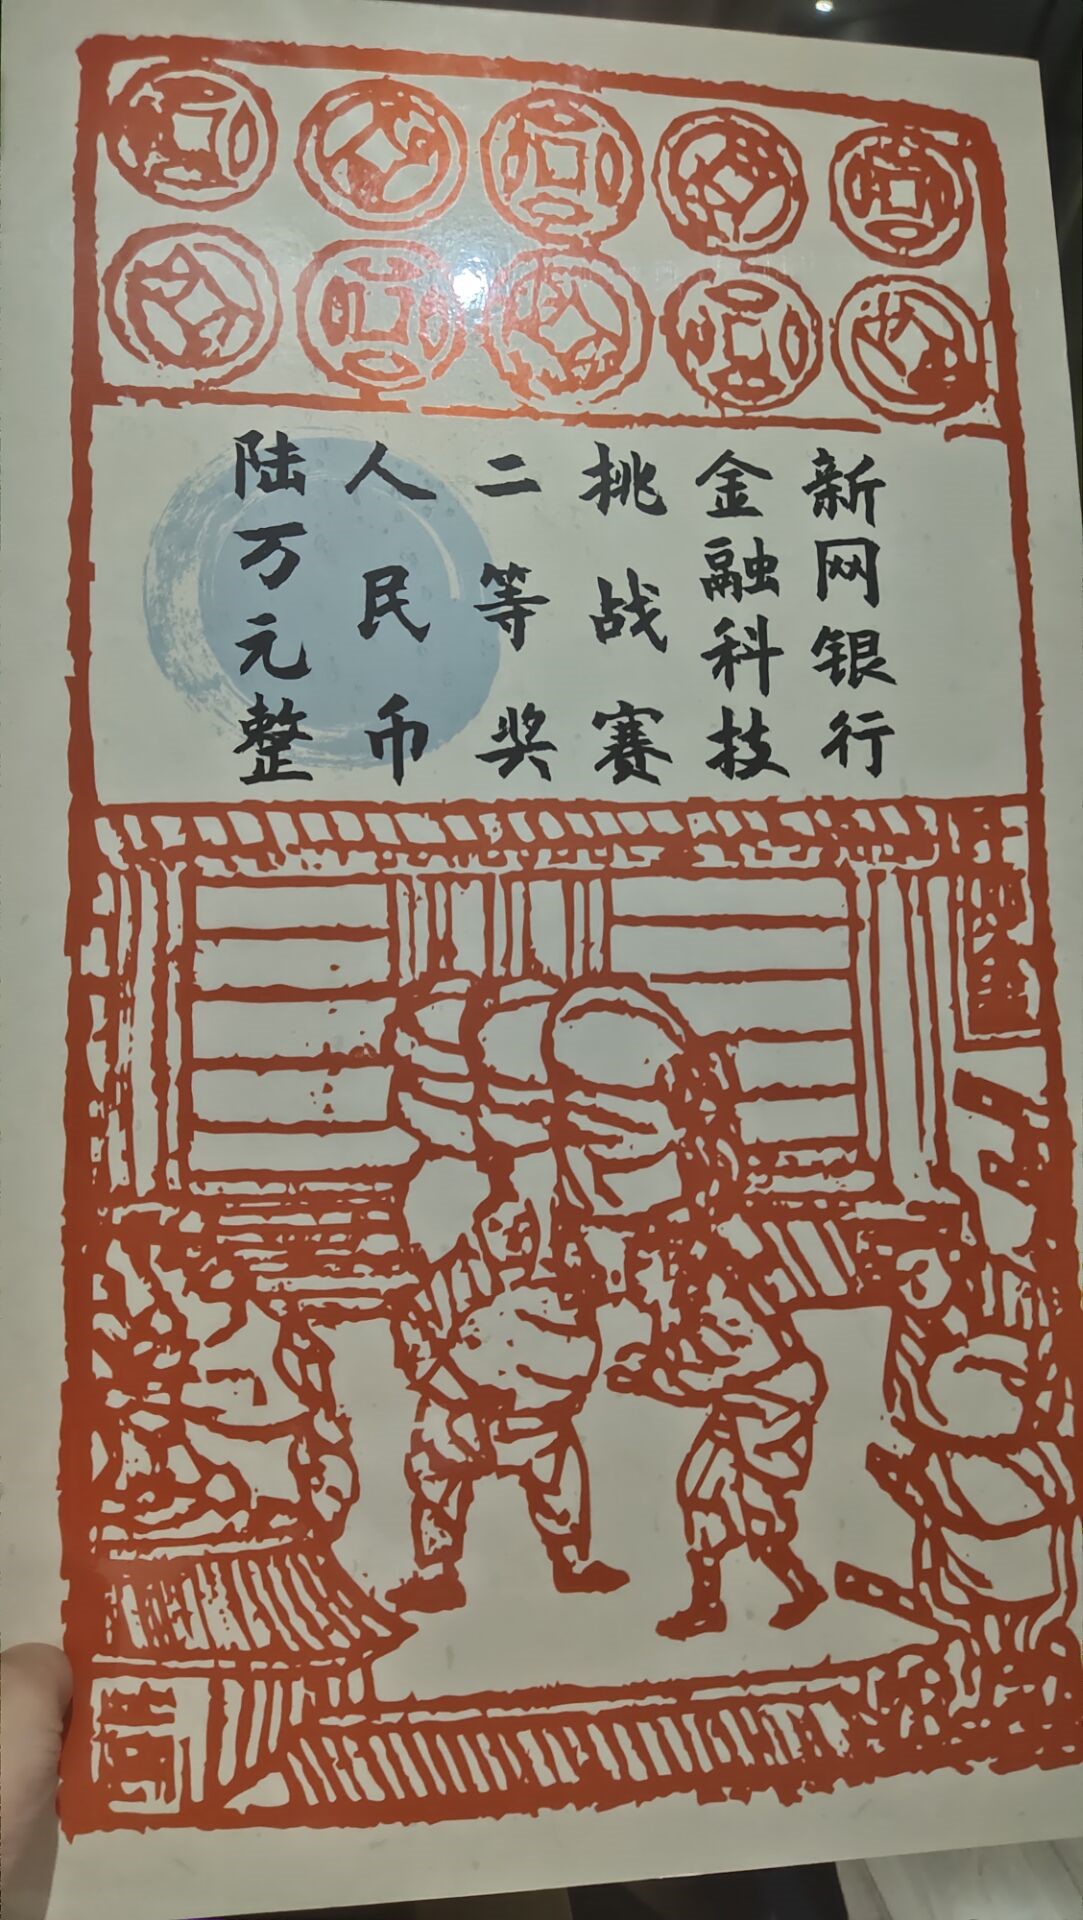 新网银行
金融科技
挑战赛
二等奖
人民币
陆万元整